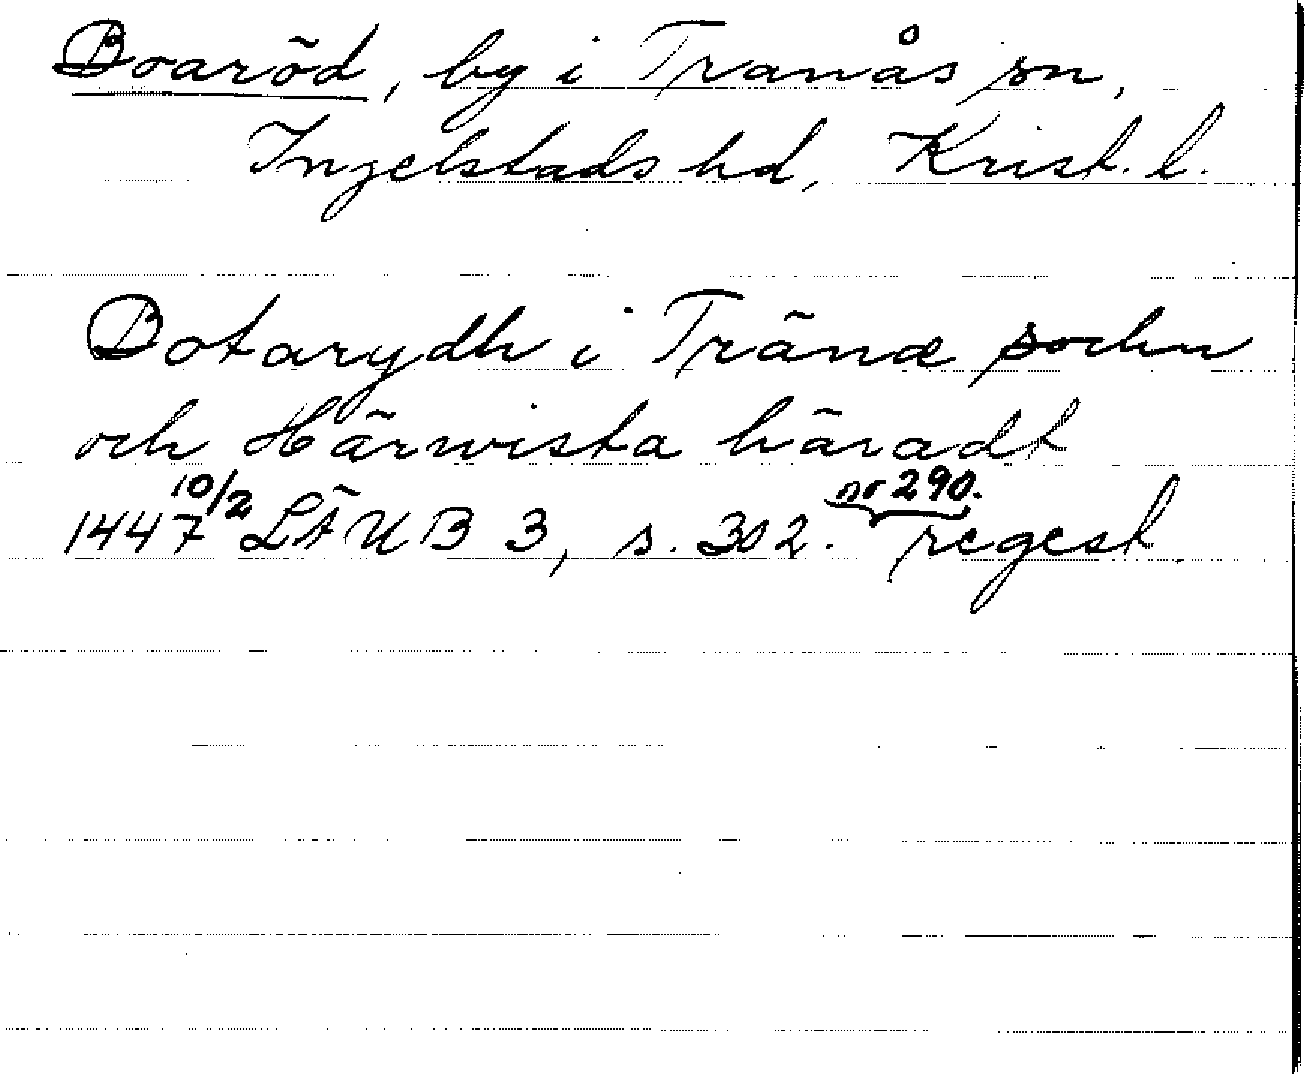 Boaröd, by i Tranås sn,
Ingelstads hd, Krist. l.
Botarydh i Träna sochn
och Härwista häradt
1447 10/2 LÄUB 3, s. 302. nr 290. regest